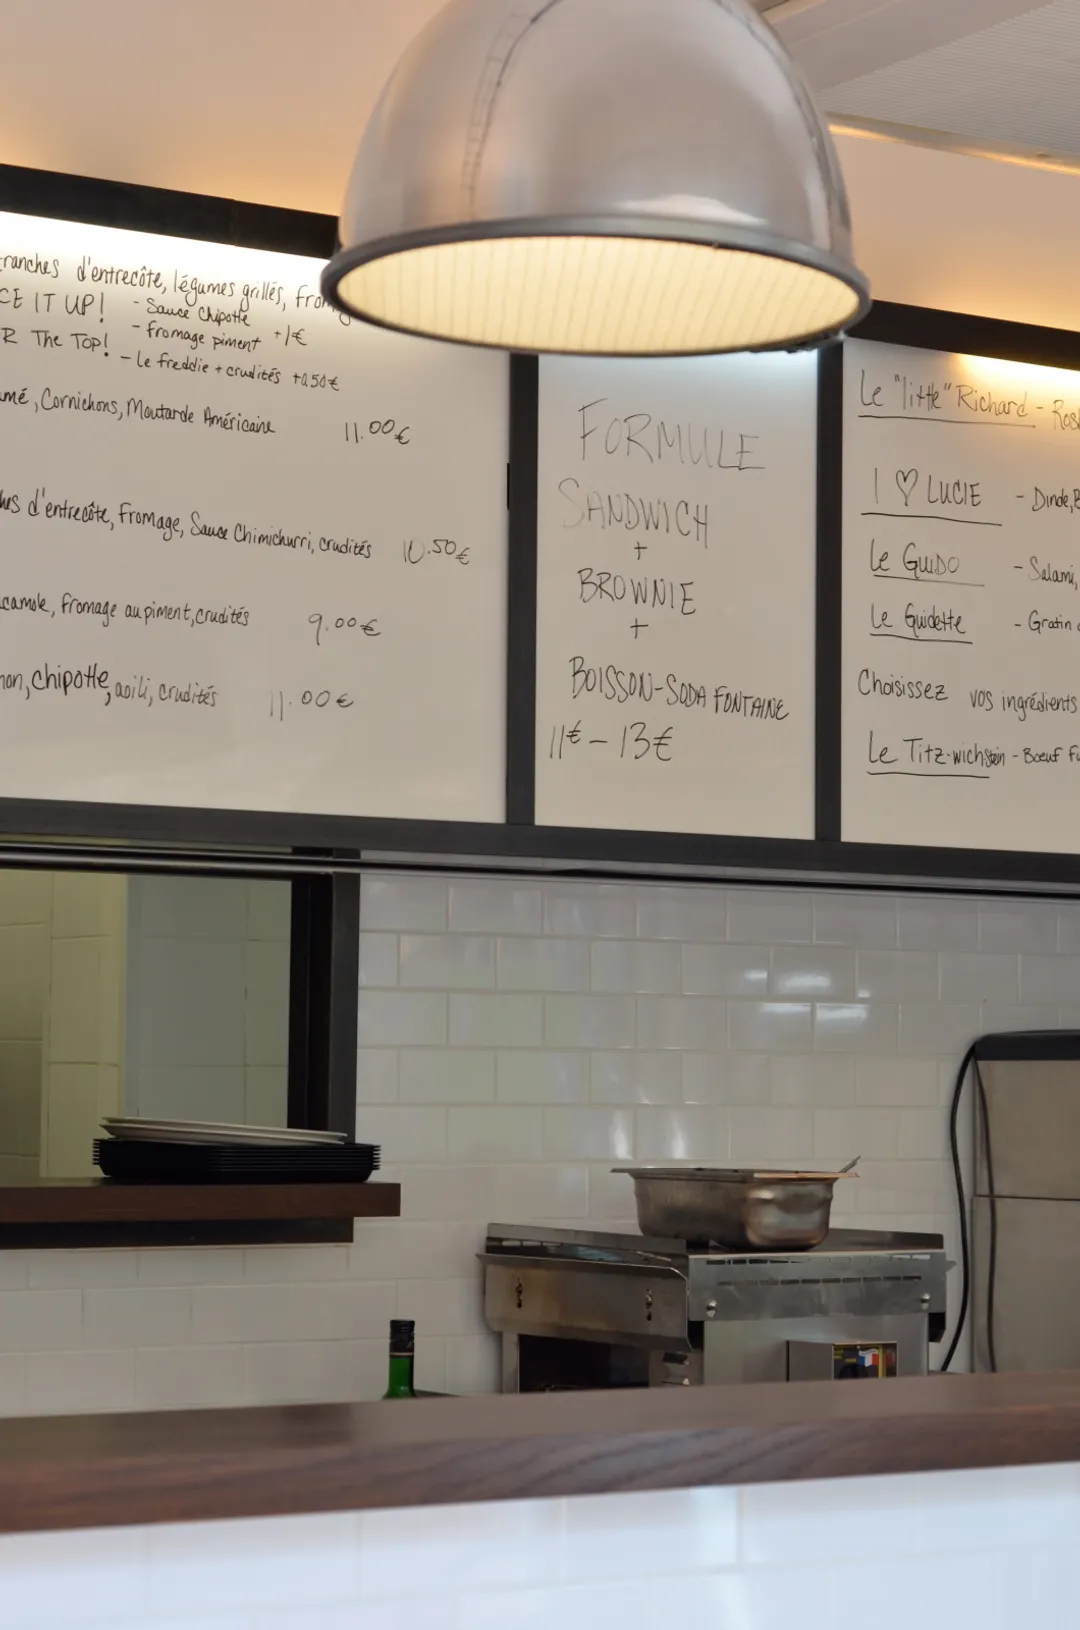 tranches d'entrecôte, légumes grillés, from
CE IT UP! - Sauce Chipotte
- fromage piment +1€
R The Top! - Le freddie + crudités +0.50€
mé, Cornichons, Moutarde Américaine 11.00€
hes d'entrecôte, fromage, Sauce Chimichurri, crudités 10.50€
camole, fromage au piment, crudités 9.00€
non, chipotle, aoili, crudités 11.00€
FORMULE
SANDWICH
+
BROWNIE
+
BOISSON-SODA FONTAINE
11€ - 13€
Le "little" Richard - Ros
I ♡ LUCIE - Dinde, B
Le GUIDO - Salami,
Le Guidette - Gratin
Choisissez vos ingrédients
Le Titz-wichstein - Boeuf fu